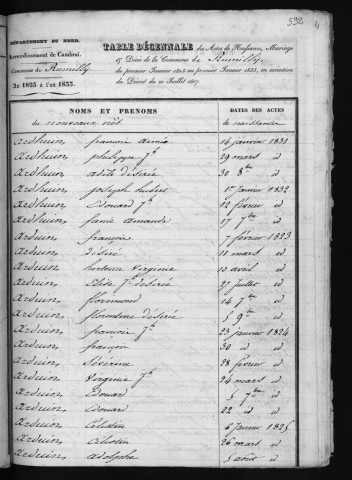 532 4
DÉPARTEMENT DU NORD.
Arrondissement de Cambrai.
Commune de Rumilly
AN 1823 à l'an 1833.
TABLE DÉCENNALE des Actes de Naissance, Mariage
& Décès de la Commune de Rumilly
du premier Janvier 1823 au premier Janvier 1833, en exécution
du Décret du 20 Juillet 1807.
NOMS ET PRÉNOMS DATES DES ACTES
des nouveaux nés de naissances
ardhuin françois aimé 14 janvier 1831
ardhuin philippe jh 29 mars id
ardhuin adèle désirée 30 8bre id
ardhuin joseph hubert 1er janvier 1832
ardhuin Edouard jh 12 février id
ardhuin fanie amande 17 7bre id
arduin françois 7 février 1823
arduin désiré 11 mars id
arduin hortense virginie 10 avril id
arduin élise jh désirée 27 juillet id
arduin florimond 14 7bre id
arduin florentine désirée 5 9bre id
arduin françois jh 23 janvier 1824
arduin françois 30 id id
arduin Sévérine 28 février id
arduin virginie jh 24 mars id
arduin Edouard 5 7bre id
arduin Edouard 22 id id
arduin Célestin 6 janvier 1825
arduin Célestin 26 mars id
arduin adolphe 5 août id